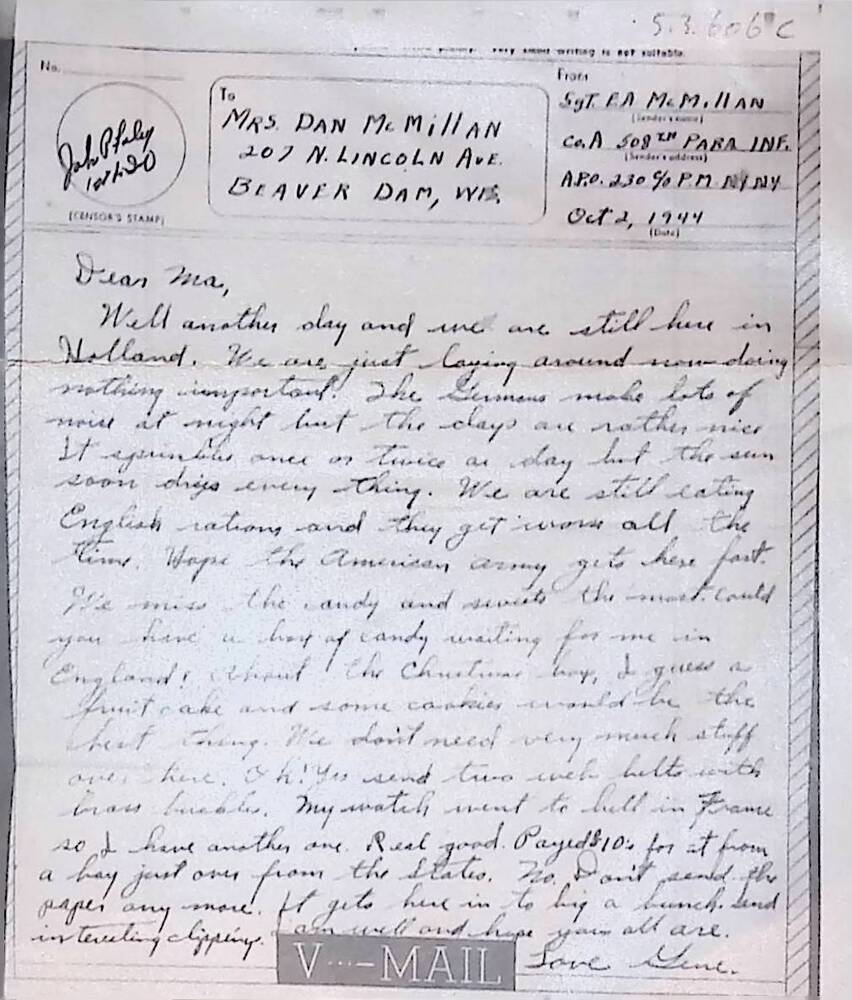 5.3.606 C
very small writing is not suitable.
No.
John P Foley
1st Lt
(CENSOR'S STAMP)
To
MRS. DAN McMillAN
207 N. LINCOLN AVE.
BEAVER DAM, WIS.
From
SgT. EA McMillAN
(Sender's name)
Co. A 508TH PARA INF.
(Sender's address)
A.P.O. 230 c/o P.M. NY NY
Oct 2, 1944
(Date)
Dear Ma,
Well another day and we are still here in
Holland. We are just laying around now doing
nothing important. The Germans make lots of
noise at night but the days are rather nice
It sprinkles once or twice a day but the sun
soon drys every thing. We are still eating
English rations and they get worse all the
time. Hope the American army gets here fast.
We miss the candy and sweets the most. Could
you have a box of candy waiting for me in
England? About the Christmas box, I guess a
fruit cake and some cookies would be the
best thing. We don't need very much stuff
over here. Oh! Yes send two web belts with
brass buckles. My watch went to hell in France
so I have another one. Real good. Payed $10 for it from
a boy just over from the States. No, Don't send the
paper any more. It gets here in to big a bunch. Send
interesting clippings. I am well and hope you all are.
Love Gene.
V···-MAIL